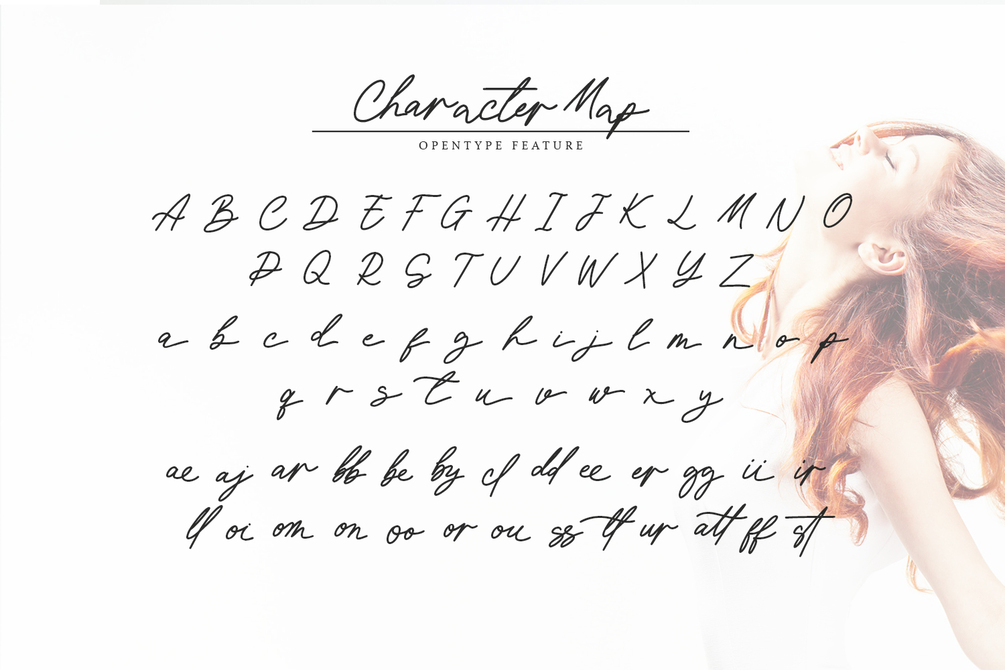 Character Map
OPENTYPE FEATURE
A B C D E F G H I J K L M N O
P Q R S T U V W X Y Z
a b c d e f g h i j l m n o p
q r s t u v w x y
ae aj ar bb be by cl dd ee er gg ii ir
ll oi om on oo or ou ss tt ur att ff st